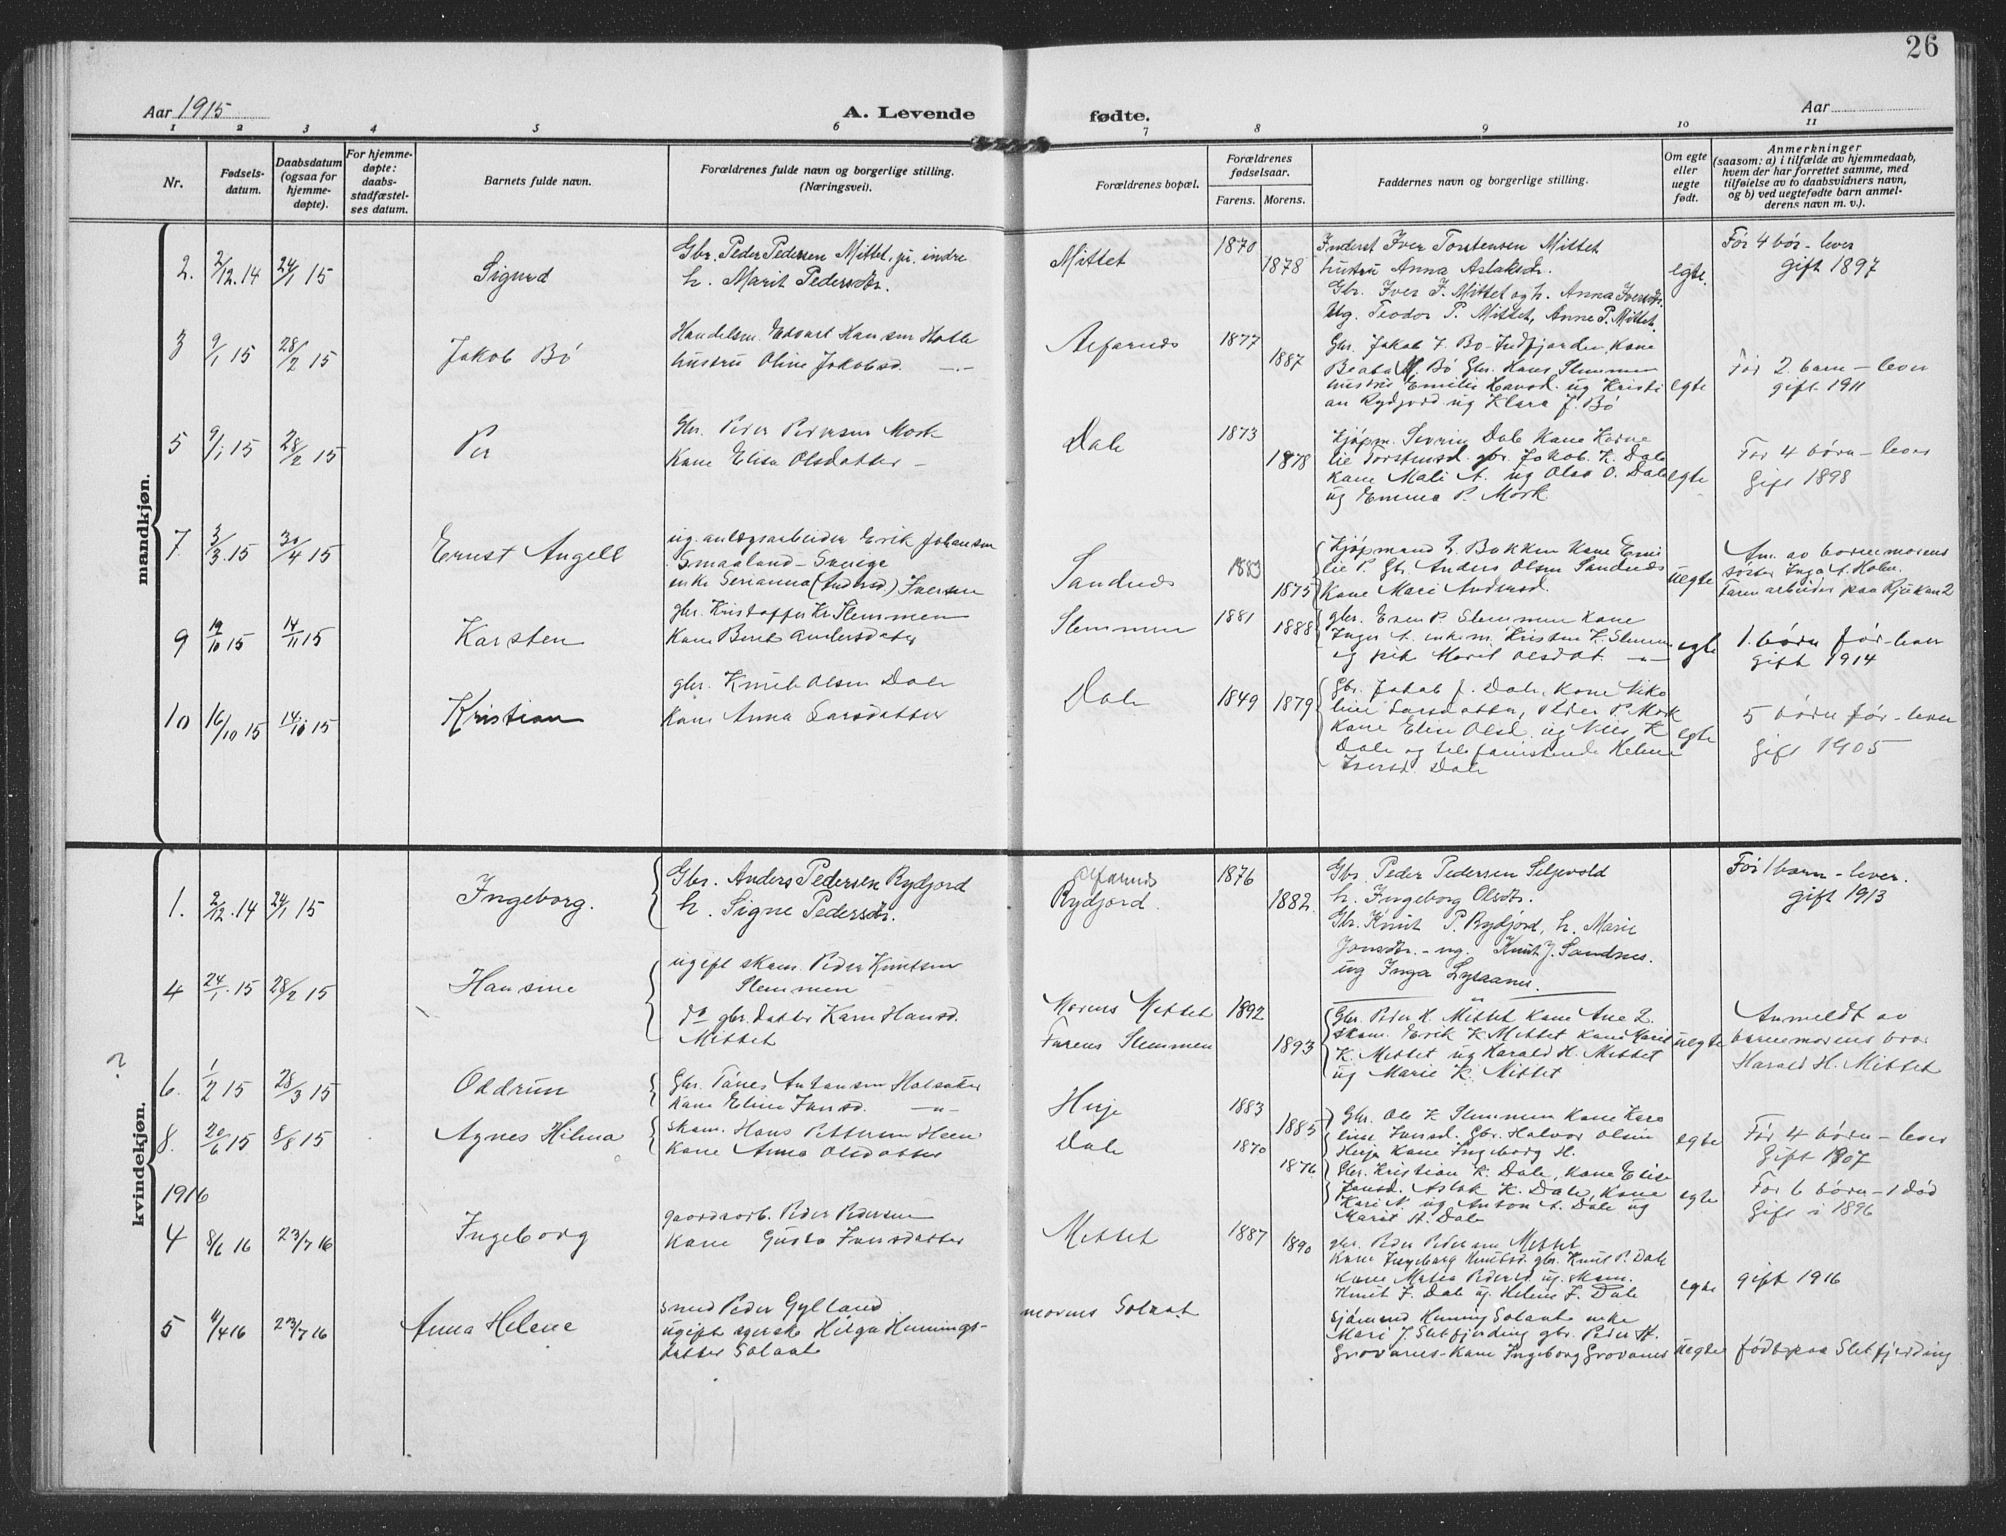 26
Aar 1915
A. Levende fødte.
Aar
1 2 3 4 5 6 7 8 9 10 11
Nr.
Fødsels-
datum.
Daabsdatum
(ogsaa for
hjemme-
døpte).
For hjemme-
døpte:
daabs-
stadfæstel-
ses datum.
Barnets fulde navn.
Forældrenes fulde navn og borgerlige stilling.
(Næringsvei).
Forældrenes bopæl.
Forældrenes
fødselsaar.
Farens. Morens.
Faddernes navn og borgerlige stilling.
Om egte
eller
uegte
født.
Anmerkninger
(saasom: a) i tilfælde av hjemmedaab,
hvem der har forrettet samme, med
tilføielse av to daabsvidners navn,
og b) ved uegtefødte barn anmel-
derens navn m. v.).
mandkjøn.
2. 2/12.14 24/1 15 Sigurd
Gbr. Peder Pedersen Mittet, indre
h. Marit Pedersdtr.
Mittet 1870 1878
Inderst Iver Torstensen Mittet
hustru Anna Aslaksdr.
Gbr. Iver I. Mittet og h. Anna Iversdr.
Ug. Teodor P. Mittet, Anne P. Mittet.
egte.
Før 4 bør - lever
gift 1897
3 9/1 15 28/2 15 Jakob Bø
Handelsm. Edvart Hansen Holle
hustru Oline Jakobsd. -"-
Aefarnæs 1877 1887
Gbr. Jakob J. Bø Indfjorden, Kane
Beata M. Bø Gbr. Hans Slemmen
hustru Emilie Hansd. ug Kristi
an Rydjord ug Klara J. Bø
egte
Før 2 barn - lever
gift 1911
5 9/1 15 28/2 15 Per
Gbr. Peder Pedersen Mork
Kane Elisa Olsdatter -
Dale 1873 1878
Kjøpm. Severin Dale Kane Karne
lie Torstensd. gbr. Jakob K. Dale
Kane Mali A. ug Olav O. Dale
ug Emma P. Mork
egte
Før 4 børn - lever
Gift 1898
7 3/3.15 30/4 15 Ernst Angell
ug. anlægsarbeider Erik Johansen
Smaaland - Sverige
enke Serianna (Andersd) Iversen
Sandnæs 1883 1875
Kjøpmand E. Bakken Kane Emi
lie P. Gbr. Anders Olsen Sandnæs
Kane Mari Andersd.
uegte
An. av barnemorens
søster Inga A. Holm.
Faren arbeider paa Rjukan 2
9 19/10 15 14/11 15 Karsten
gbr. Kristoffer Kr. Slemmen
Kane Berit Andersdatter
Slemmen 1881 1888
gbr. Even P. Slemmen Kane
Inger A. enkem. Kristen K. Slemm
og pike Marit Olsdat. -"-
egte
1. børn før - lever
gift 1914
10 16/10 15 14/10 15 Kristian
gbr. Knut Olsen Dale
Kane Anna Larsdatter
Dale 1849 1879
Gbr. Jakob J. Dale, Kane Niko
line Larsdatter, Peder P. Mork
Kane Elise Olsd. ug Nils K
Dale og telefonistinde Helene
Iversd. Dale
egte
5 børn før - lever
Gift 1905
kvindekjøn.
1. 2/12.14 24/1 15 Ingeborg.
Gbr. Anders Pedersen Rydjord
h. Signe Pedersdr.
Aefarnæs
Rydjord. 1876 1882.
Gbr. Peder Pedersen Seljevold
h. Ingeborg Olsdr.
Gbr. Knut P. Rydjord, h. Marie
Jonsdtr. - ug. Knut J. Sandnes.
ug Inga Lysaanes.
"
Før 1 barn - lever.
gift 1913
4 24/1.15 28/2 15 Hansine
ugift skom. Peder Knutsen
Slemmen
do gbr. datter Karen Hansd.
Mittet
Morens Mittet
Farens Slemmen
1892 1893
Gbr. Peder K. Mittet Kane Ane L.
skom. Erik K. Mittet Kane Marit
K. Mittet ug Harald H. Mittet
ug Marie K. Mittet
uegte
Anmeldt av
barnemorens bror
Harald H. Mittet
?
6. 1/2 15 28/3 15 Oddrun
Gbr. Tønes Antonsen Holsæter
Kane Eline Jensd. -"-
Huje 1883 1885
Gbr. Ole K. Slemmen Kane Karo
line Jensd. Gbr. Halvor Olsen
Huje Kane Ingeborg H.
egte
Før 4 børn - lever
Gift 1907
8. 20/6 15 8/8 15 Agnes Hilma
skom. Hans Pettersen Heen
Kane Anna Olsdatter
Dale 1870 1876
Gbr. Kristian K. Dale, Kane Elise
Jensd. Aslak K. Dale, Kane
Kari A. ug Anton A. Dale ug
Marit A. Dale
egte
Før 6 børn - 1 død
Gift i 1896
1916
4 8/6 16 23/7 16 Ingeborg
gaardsarb. Peder Pedersen
Kane Gusta Jensdatter
Mittet 1887 1890
gbr. Peder Pedersen Mittet
Kane Ingeborg Knutsd. gbr. Knut P. Dale
Kane Matea Pedersd. ug. skom.
Knut F. Dale ug Helene F. Dale
egte
gift 1916
5 4/4 16 23/7 16 Anna Helene
smed Peder Gylland
ugift syerske Helga Hennings-
datter Solaat
morens Solaat
sjømand Henning Solaat enke
Mari J. Sletfjerding gbr. Peder H.
Grovanes - Kane Ingeborg Grovanes
uegte
født paa Sletfjerding